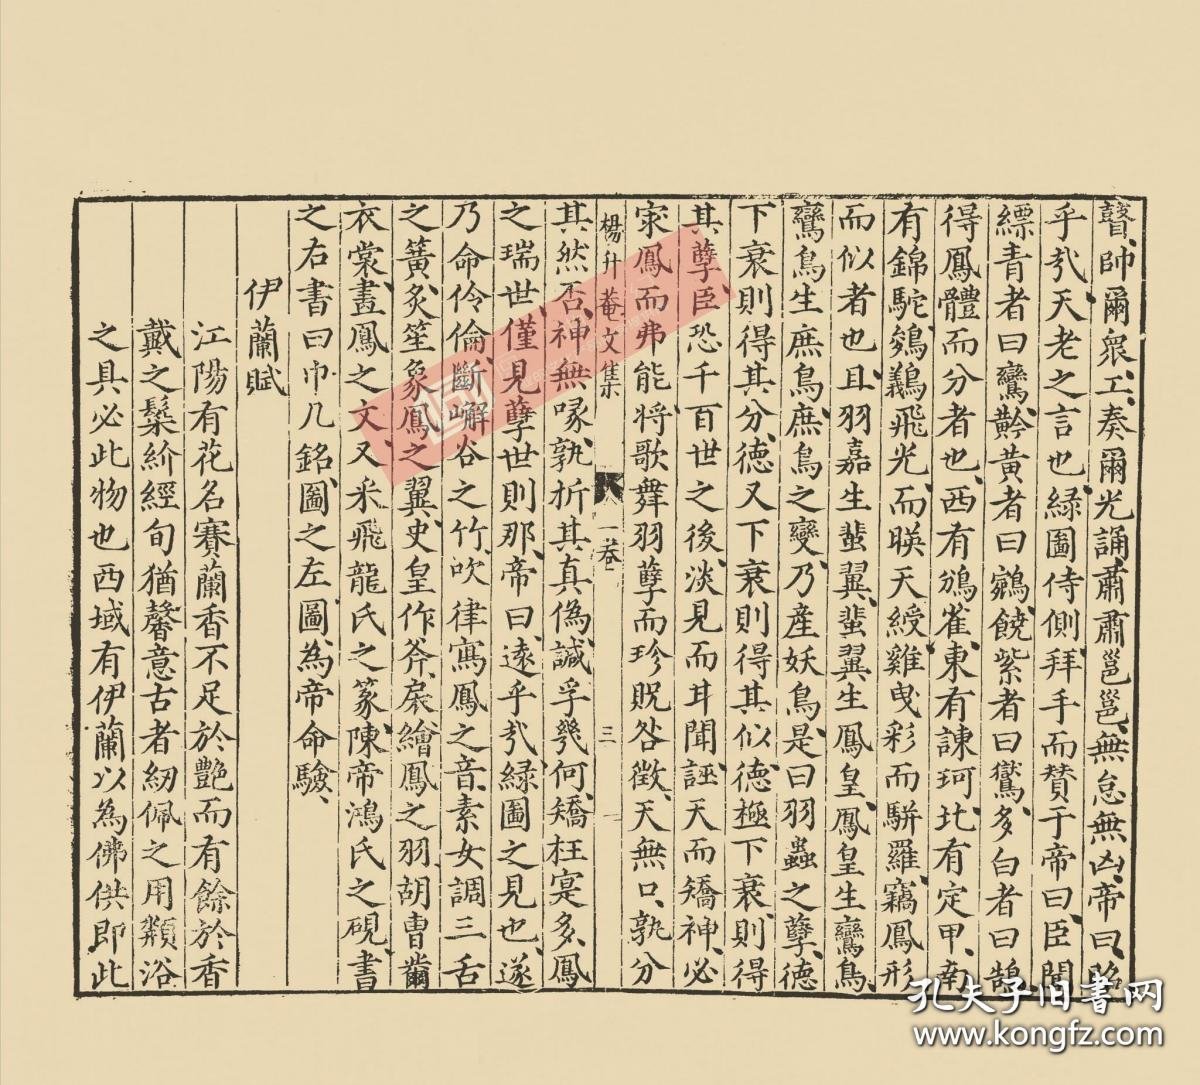 瞽帥爾眾工奏爾光誦肅肅邕邕無怠無凶帝曰咯
乎㢤天老之言也綠圖侍側拜手而贊于帝曰臣聞
縹青者曰鸞黅黃者曰鵷鐃紫者曰鸑多白者曰鵠
得鳳體而分者也西有鴋雀東有諫珂北有定甲南
有錦駝鵕鸃飛光而暎天綬雞曳彩而駢羅竊鳳形
而似者也且羽嘉生蜚翼蜚翼生鳳皇鳳皇生鸞鳥
鸞鳥生庶鳥庶鳥之變乃産妖鳥是曰羽蟲之孽德
下衰則得其分德又下衰則得其似德極下衰則得
其孽臣恐千百世之後淡見而耳聞誣天而矯神必
家鳳而弗能將歌舞羽孽而珍貺咎徵天無口孰分
楊升菴文集 一卷 三
其然否神無喙孰折其真偽諴孚幾何矯枉寔多鳳
之瑞世僅見孽世則那帝曰遠乎㢤綠圖之見也遂
乃命伶倫斷嶰谷之竹吹律寫鳳之音素女調三舌
之簧炙笙象鳳之翼史皇作斧扆繪鳳之羽胡曺黹
衣棠畫鳳之文又采飛龍氏之篆陳帝鴻氏之硯書
之右書曰巾几銘圖之左圖為帝命驗
伊蘭賦
江陽有花名賽蘭香不足於艷而有餘於香
戴之髮紒經旬猶馨意古者紉佩之用纇浴
之具必此物也西域有伊蘭以為佛供即此
孔夫子旧书网
www.kongfz.com